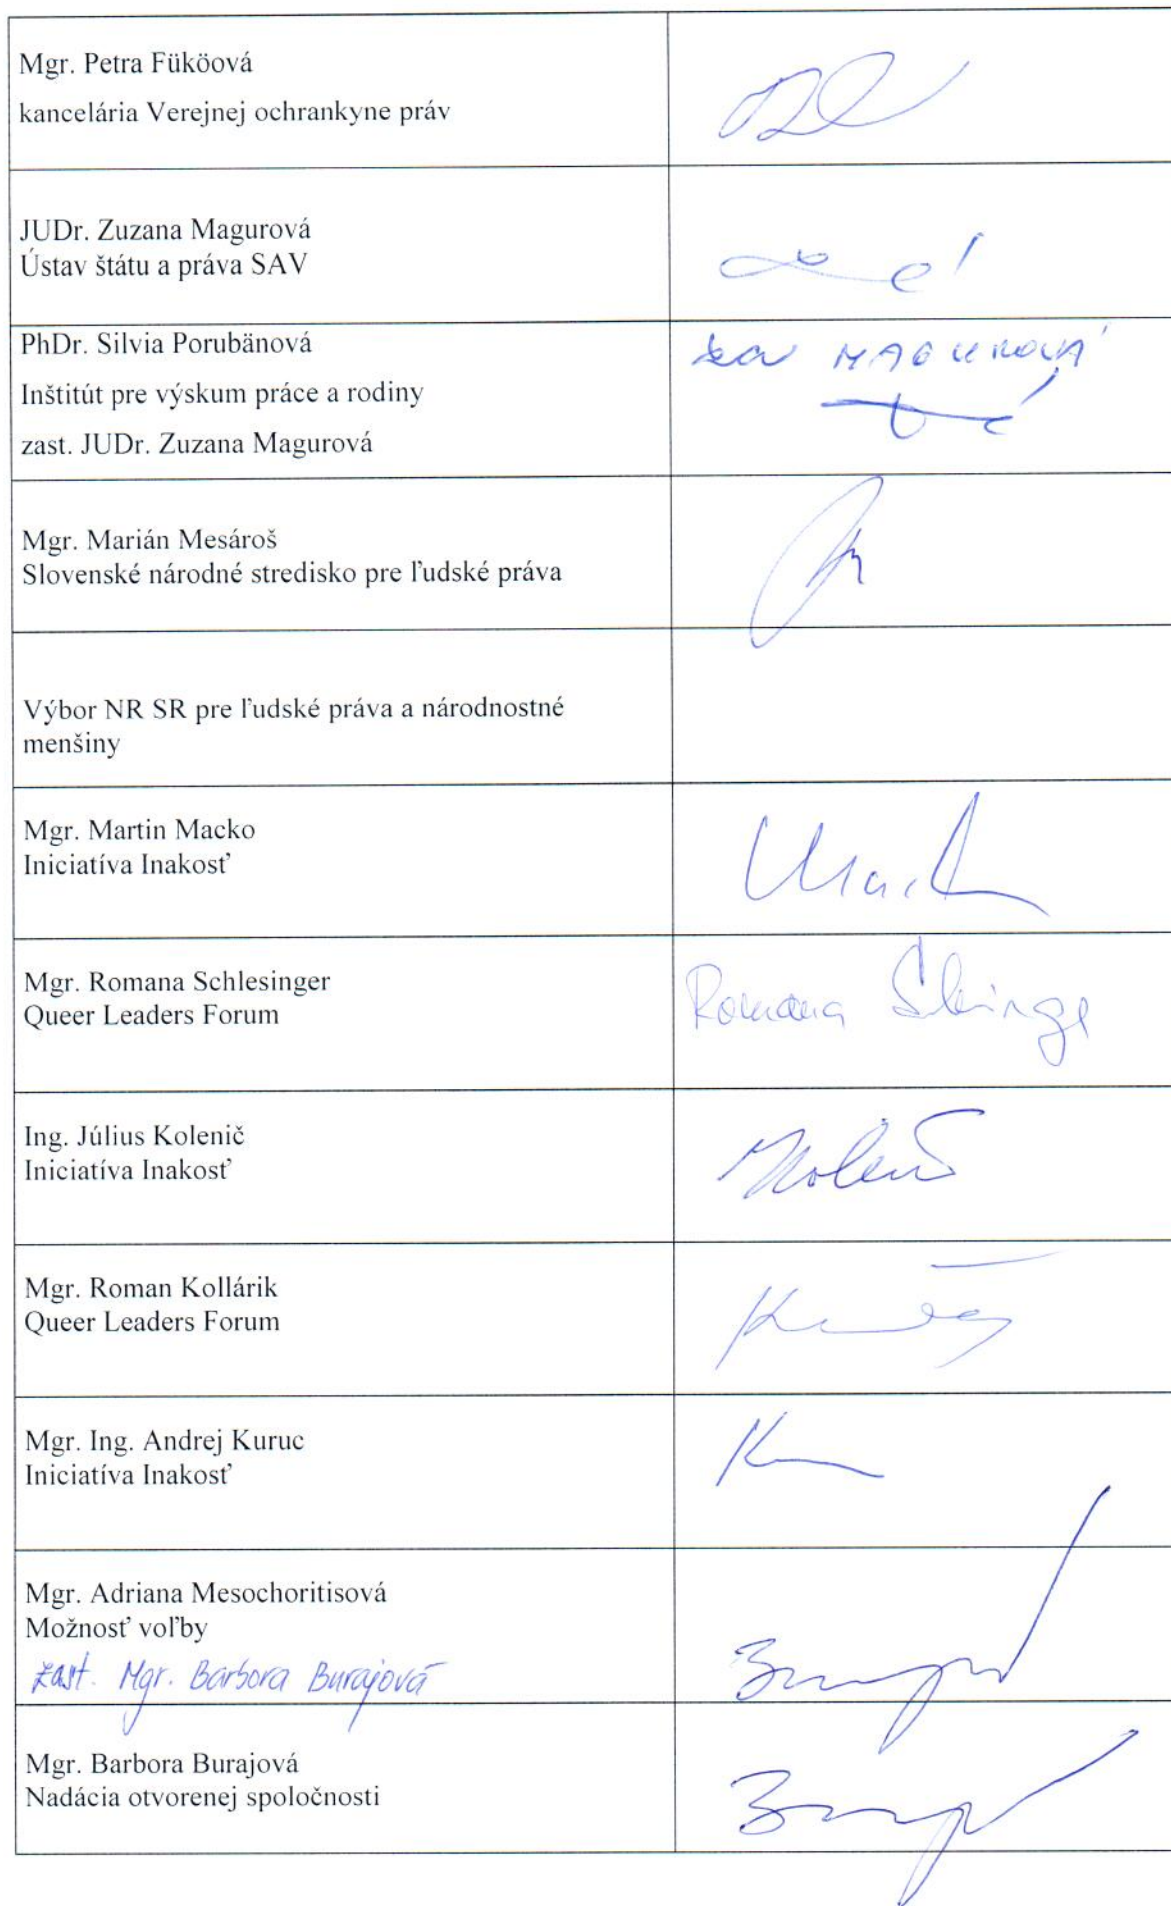 Mgr. Petra Füköová
kancelária Verejnej ochrankyne práv
JUDr. Zuzana Magurová
Ústav štátu a práva SAV
PhDr. Silvia Porubänová
MAGUROVÁ
Inštitút pre výskum práce a rodiny
zast. JUDr. Zuzana Magurová
Mgr. Marián Mesároš
Slovenské národné stredisko pre ľudské práva
Výbor NR SR pre ľudské práva a národnostné
menšiny
Mgr. Martin Macko
Iniciatíva Inakosť
Mgr. Romana Schlesinger
Queer Leaders Forum
Romana
Ing. Július Kolenič
Iniciatíva Inakosť
Mgr. Roman Kollárik
Queer Leaders Forum
Mgr. Ing. Andrej Kuruc
Iniciatíva Inakosť
Mgr. Adriana Mesochoritisová
Možnosť voľby
zast. Mgr. Barbora Burajová
Mgr. Barbora Burajová
Nadácia otvorenej spoločnosti